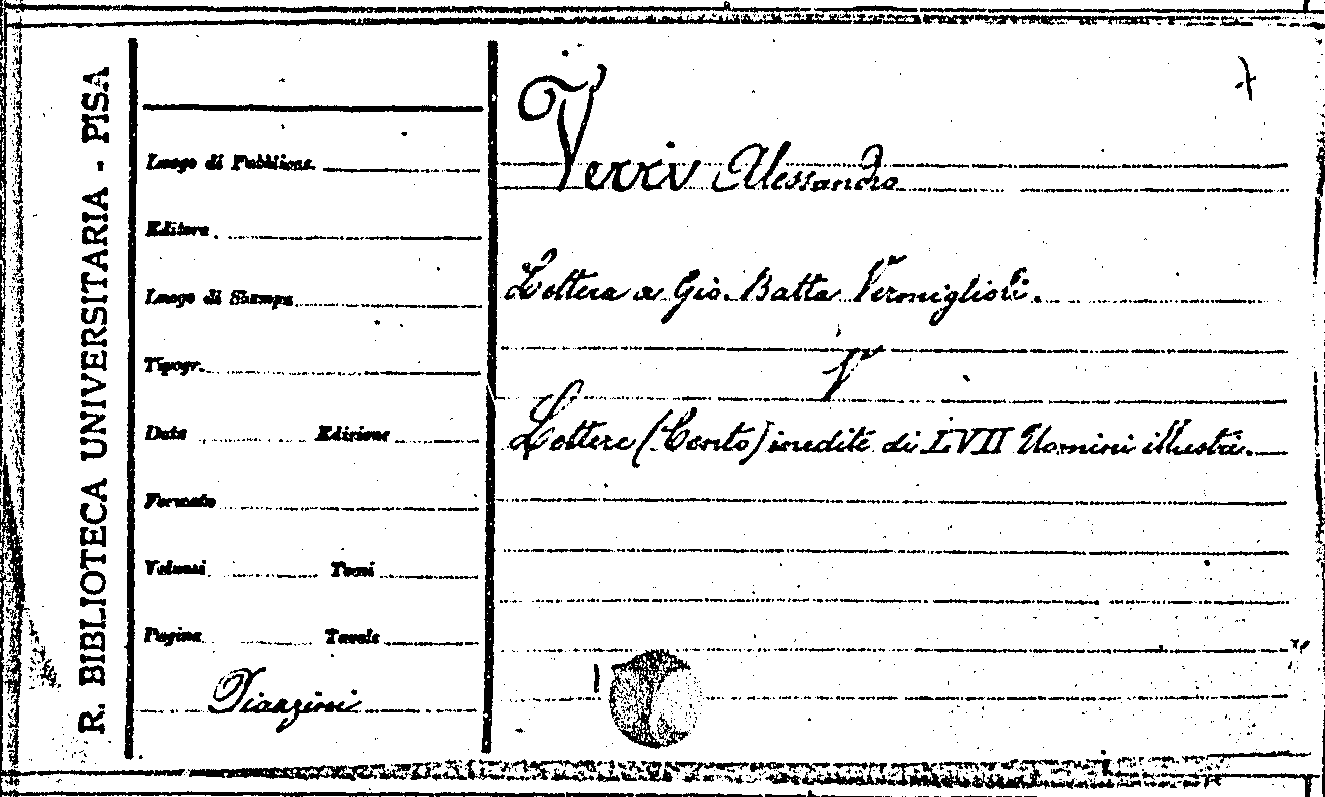 R. BIBLIOTECA UNIVERSITARIA - PISA
Luogo di Pubblicaz.
Editore
Luogo di Stampa
Tipogr.
Data Edizione
Formato
Volumi Tomi
Pagine Tavole
Verri Alessandro
Lettera a Gio. Batta Vermiglioli.
V
Lettere (Cento) inedite di LVII Uomini illustri.